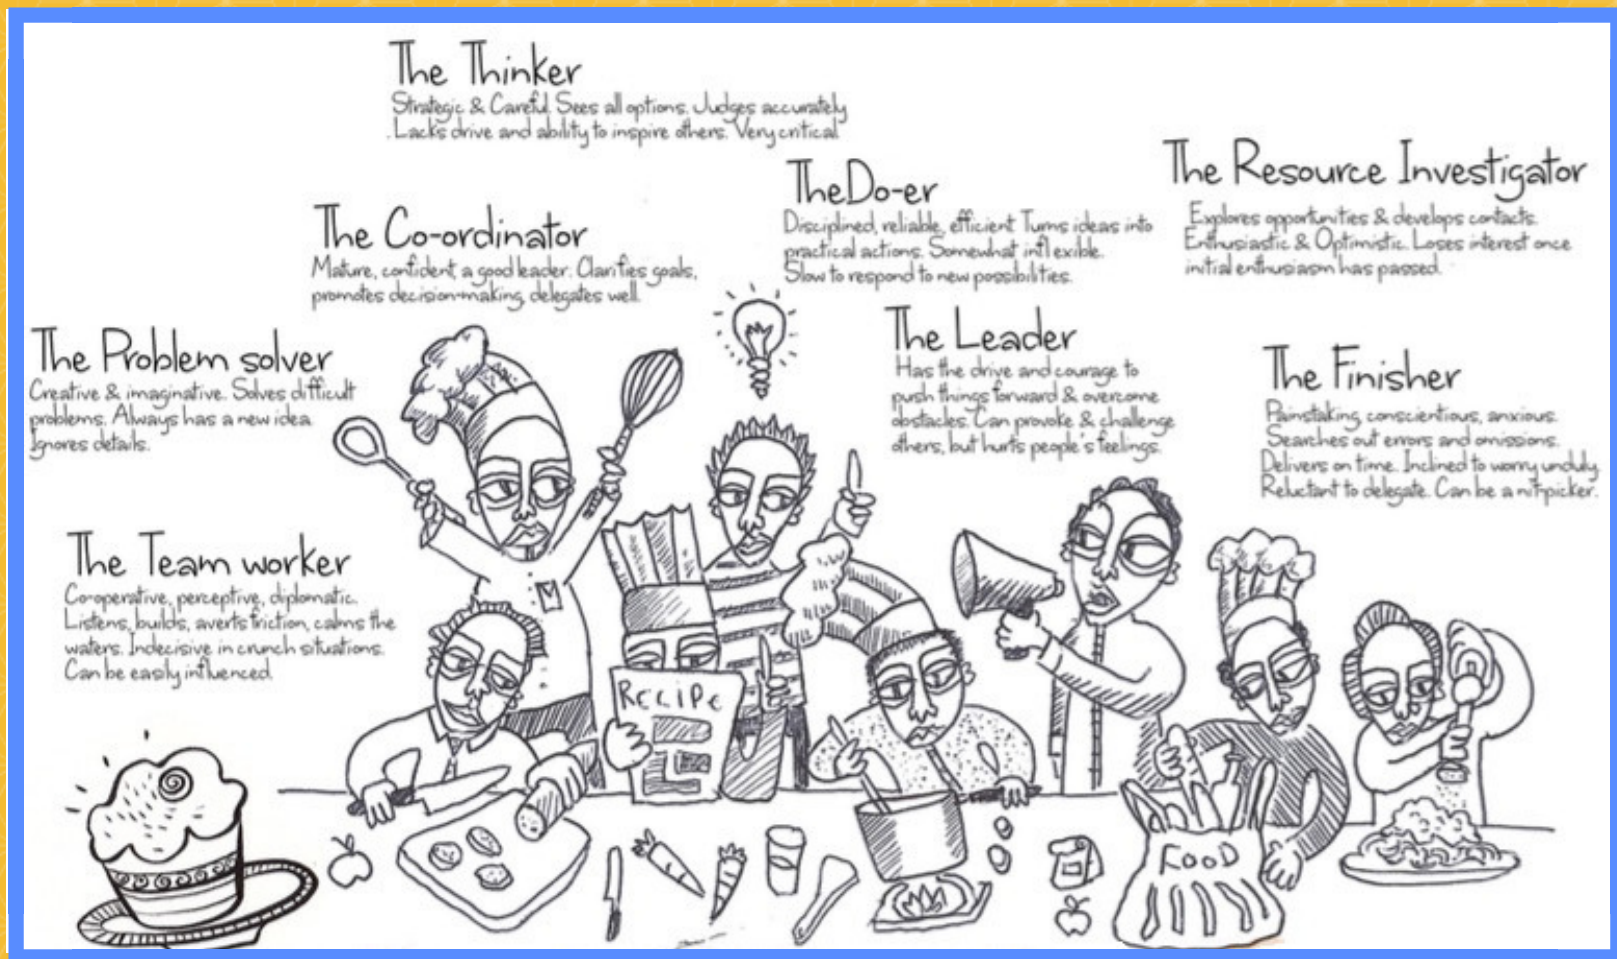 The Thinker
Strategic & Careful. Sees all options. Judges accurately
. Lacks drive and ability to inspire others. Very critical
The Co-ordinator
Mature, confident, a good leader. Clarifies goals,
promotes decision-making, delegates well.
The Do-er
Disciplined, reliable, efficient. Turns ideas into
practical actions. Somewhat infl exible.
Slow to respond to new possibilities.
The Resource Investigator
Explores opportunities & develops contacts.
Enthusiastic & Optimistic. Loses interest once
initial enthusiasm has passed.
The Problem solver
Creative & imaginative. Solves difficult
problems. Always has a new idea.
Ignores details.
The Leader
Has the drive and courage to
push things forward & overcome
obstacles. Can provoke & challenge
others, but hurts people's feelings.
The Finisher
Painstaking, conscientious, anxious.
Searches out errors and omissions.
Delivers on time. Inclined to worry unduly.
Reluctant to delegate. Can be a nit-picker.
The Team worker
Co-operative, perceptive, diplomatic.
Listens, builds, averts friction, calms the
waters. Indecisive in crunch situations.
Can be easily influenced.
RECIPE
FOOD